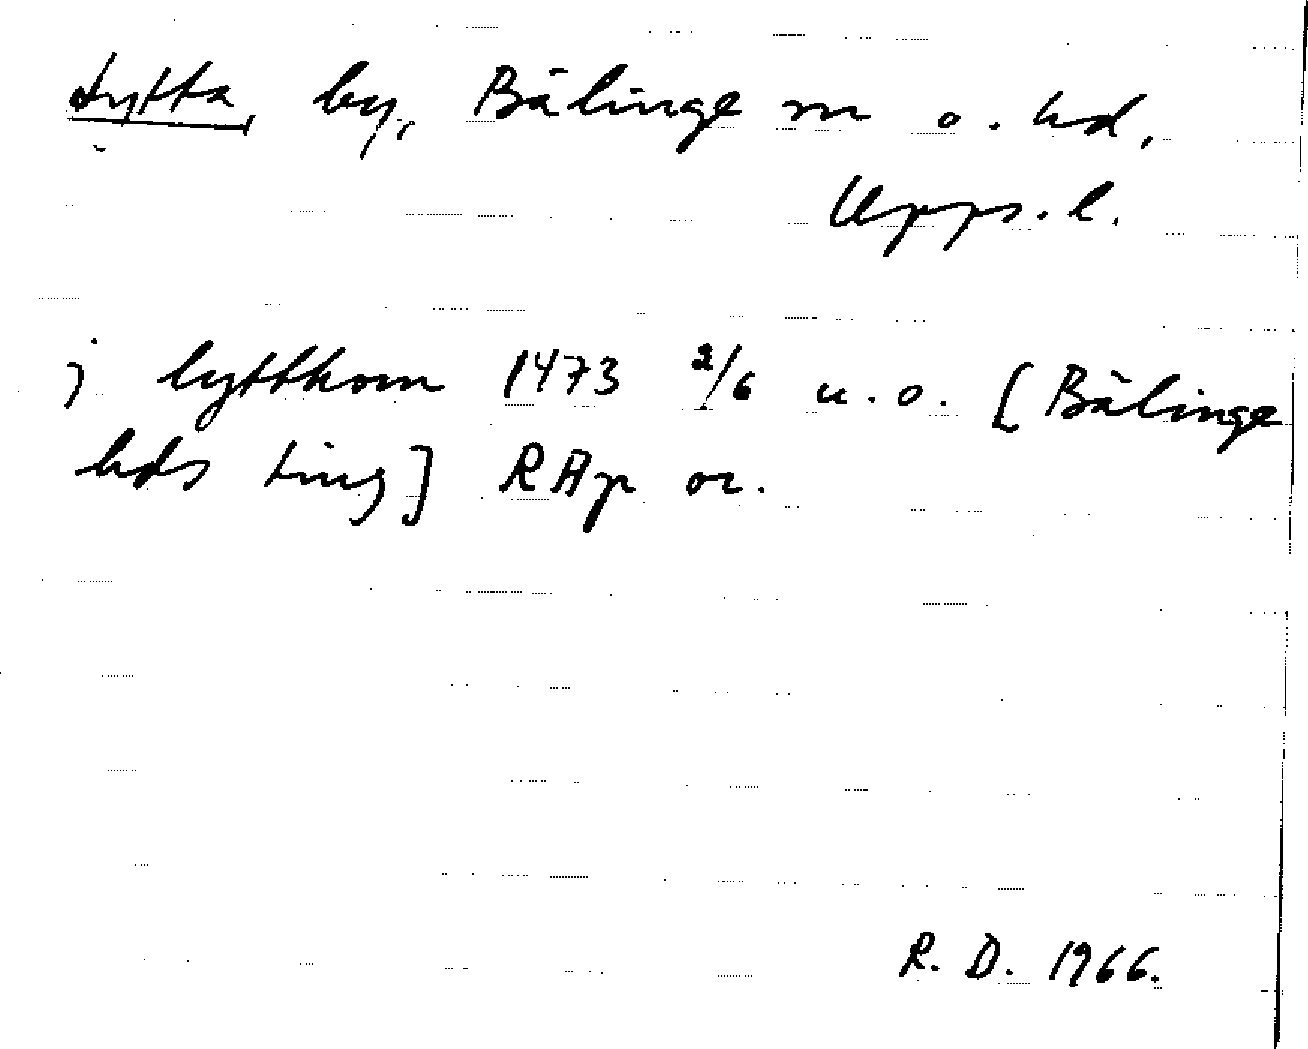 Lytta, by, Bälinge sn o. hd,
Upps. l.
j lyttkom 1473 2/6 u. o. [Bälinge
hds ting] RAp or.
R. D. 1966.